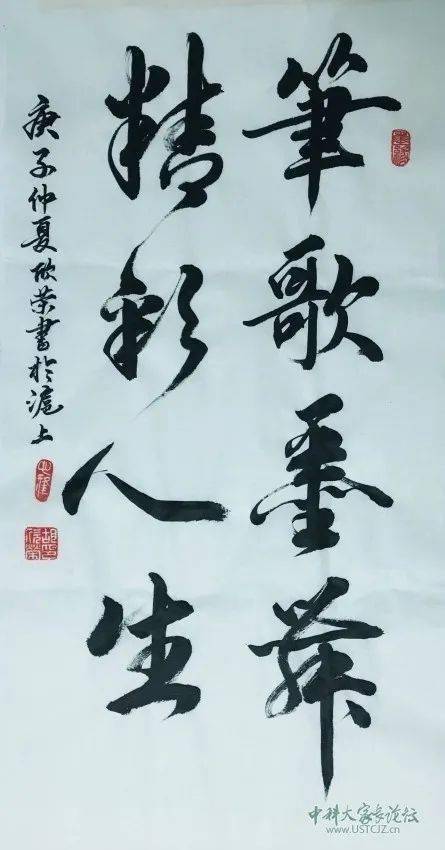 筆歌墨舞
精彩人生
庚子仲夏欣荣書於滬上
中科大家长论坛
www.USTCJZ.cn